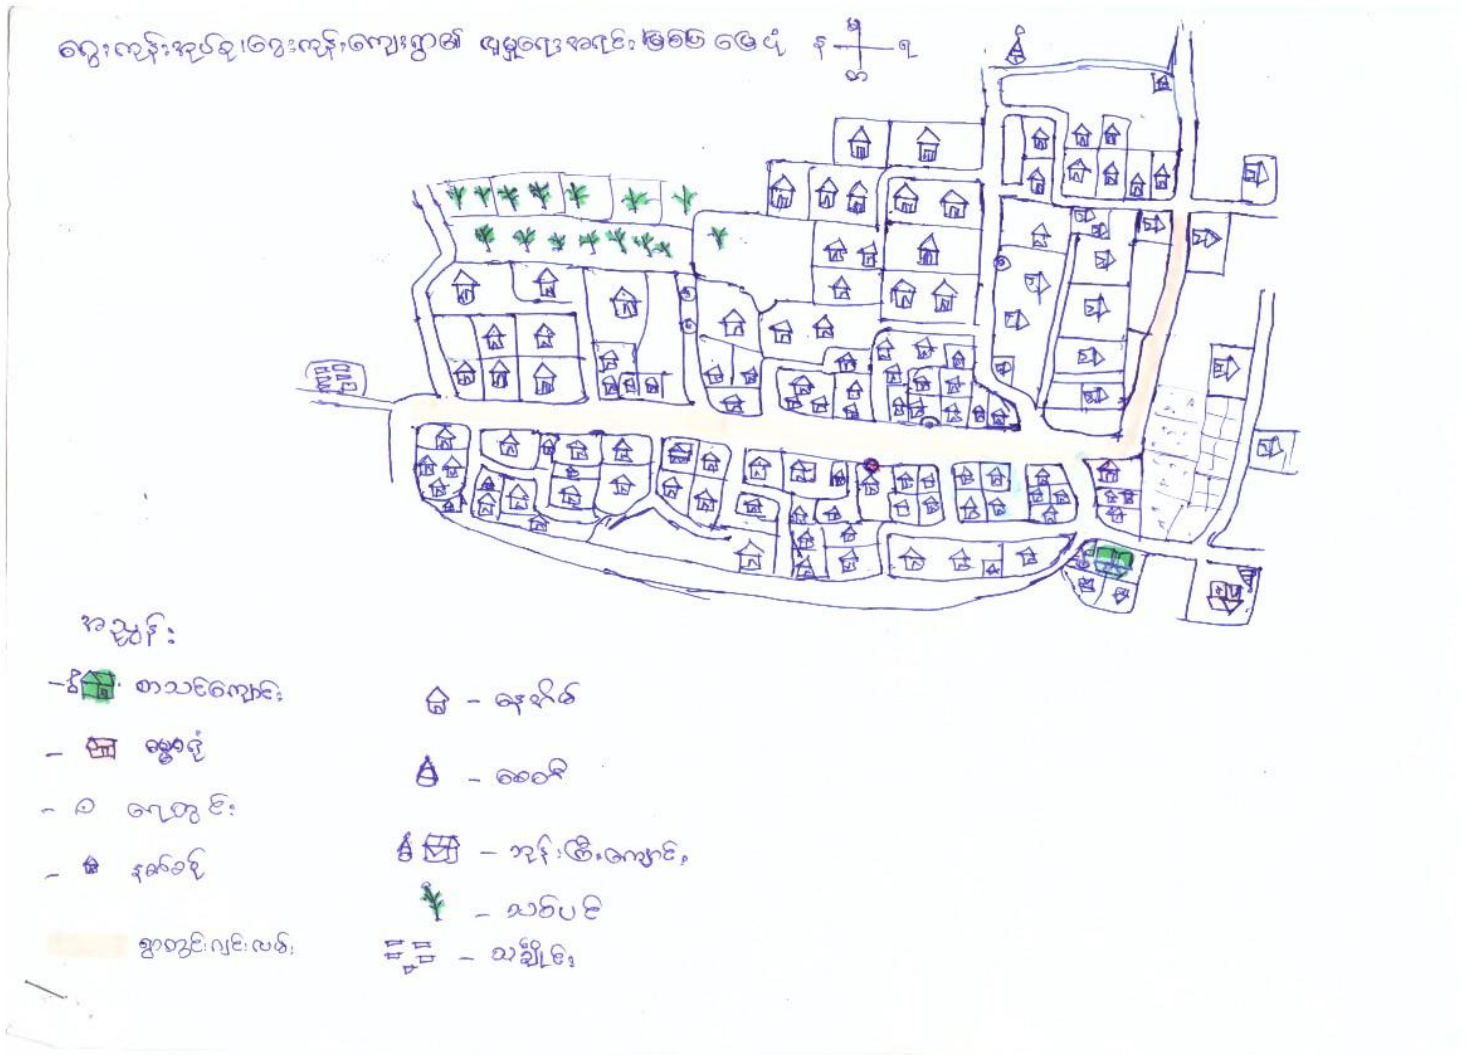 ဝေ့းကုန်းအုပ်စု၊ ဝေ့းကုန်းကျေးရွာ၏ လူမှုရေးအရင်း မြေပုံ
မ
န
ရ
တ
အညွှန်း
- စာသင်ကျောင်း
- ဓမ္မာရုံ
- ရေတွင်း
- နတ်စင်
ရွာတွင်းလမ်း
- နေအိမ်
- စေတီ
- ဘုန်းကြီးကျောင်း
- သစ်ပင်
- သင်္ချိုင်း